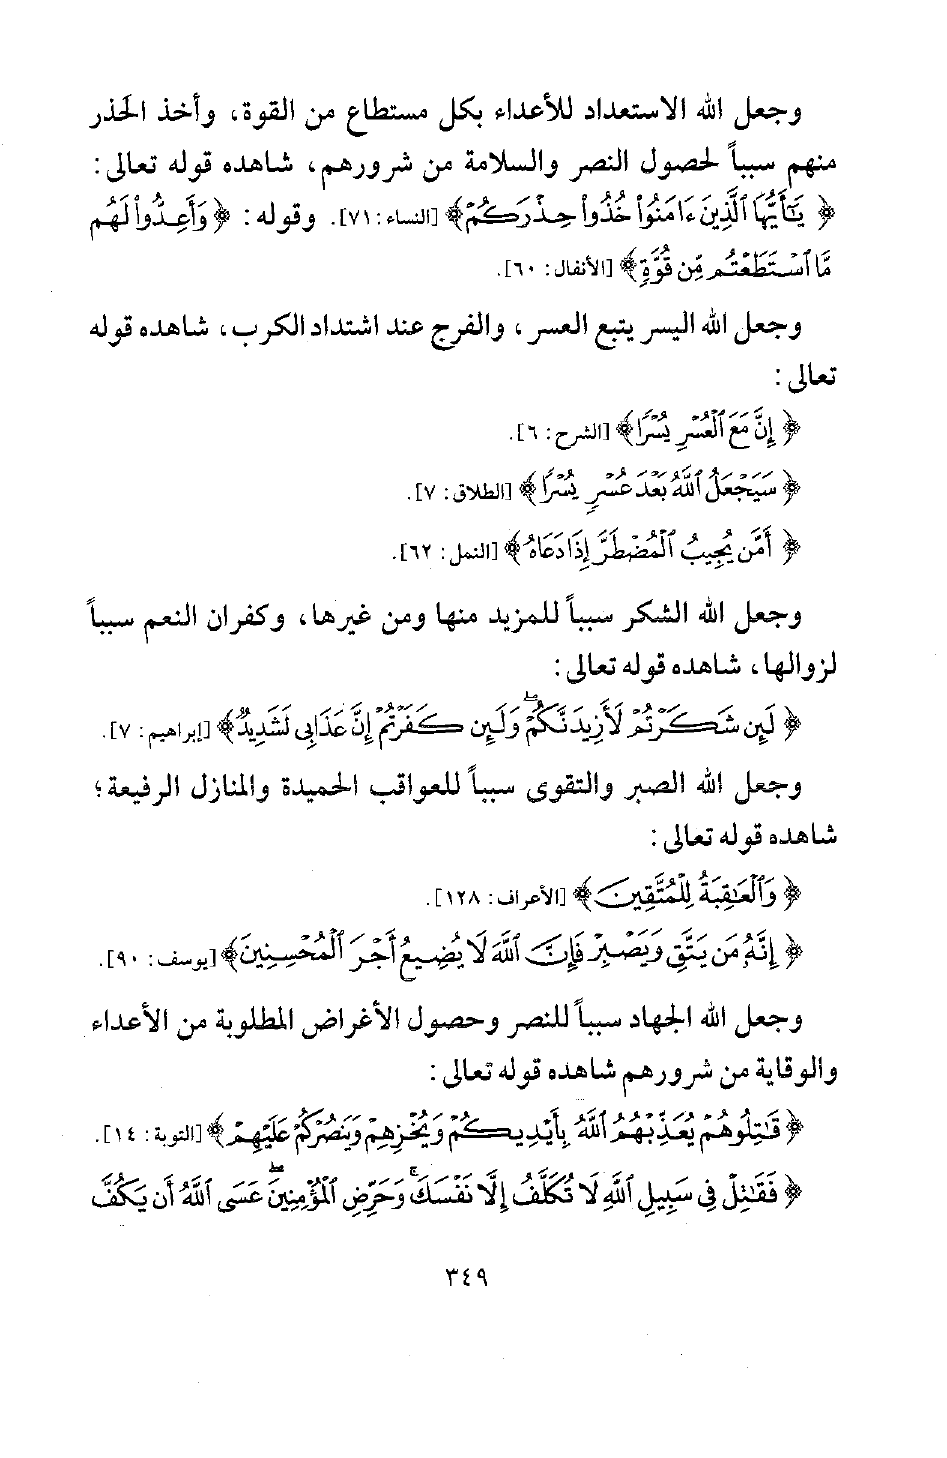 وجعل الله الاستعداد للأعداء بكل مستطاع من القوة، وأخذ الحذر
منهم سبباً لحصول النصر والسلامة من شرورهم، شاهده قوله تعالى:
﴿ يَٰٓأَيُّهَا ٱلَّذِينَ ءَامَنُوا۟ خُذُوا۟ حِذْرَكُمْ﴾ [النساء: ٧١]. وقوله: ﴿ وَأَعِدُّوا۟ لَهُم
مَّا ٱسْتَطَعْتُم مِّن قُوَّةٍ﴾ [الأنفال: ٦٠].
وجعل الله اليسر يتبع العسر، والفرج عند اشتداد الكرب، شاهده قوله
تعالى:
﴿ إِنَّ مَعَ ٱلْعُسْرِ يُسْرًا﴾ [الشرح: ٦].
﴿ سَيَجْعَلُ ٱللَّهُ بَعْدَ عُسْرٍ يُسْرًا﴾ [الطلاق: ٧].
﴿ أَمَّن يُجِيبُ ٱلْمُضْطَرَّ إِذَا دَعَاهُ﴾ [النمل: ٦٢].
وجعل الله الشكر سبباً للمزيد منها ومن غيرها، وكفران النعم سبباً
لزوالها، شاهده قوله تعالى:
﴿ لَئِن شَكَرْتُمْ لَأَزِيدَنَّكُمْ ۖ وَلَئِن كَفَرْتُمْ إِنَّ عَذَابِى لَشَدِيدٌ﴾ [إبراهيم: ٧].
وجعل الله الصبر والتقوى سبباً للعواقب الحميدة والمنازل الرفيعة؛
شاهده قوله تعالى:
﴿ وَٱلْعَٰقِبَةُ لِلْمُتَّقِينَ﴾ [الأعراف: ١٢٨].
﴿ إِنَّهُۥ مَن يَتَّقِ وَيَصْبِرْ فَإِنَّ ٱللَّهَ لَا يُضِيعُ أَجْرَ ٱلْمُحْسِنِينَ﴾ [يوسف: ٩٠].
وجعل الله الجهاد سبباً للنصر وحصول الأغراض المطلوبة من الأعداء
والوقاية من شرورهم شاهده قوله تعالى:
﴿ قَٰتِلُوهُمْ يُعَذِّبْهُمُ ٱللَّهُ بِأَيْدِيكُمْ وَيُخْزِهِمْ وَيَنصُرْكُمْ عَلَيْهِمْ﴾ [التوبة: ١٤].
﴿ فَقَٰتِلْ فِى سَبِيلِ ٱللَّهِ لَا تُكَلَّفُ إِلَّا نَفْسَكَ ۚ وَحَرِّضِ ٱلْمُؤْمِنِينَ ۖ عَسَى ٱللَّهُ أَن يَكُفَّ
٣٤٩